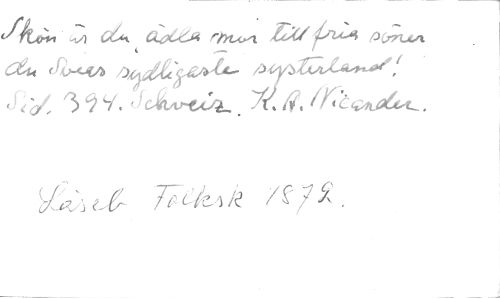 Skön är du, ädla mor till fria söner
du Sveas sydligaste systerland!
Sid. 394. Schweiz. K. A. Nicander.
Läseb Folksk 1872.